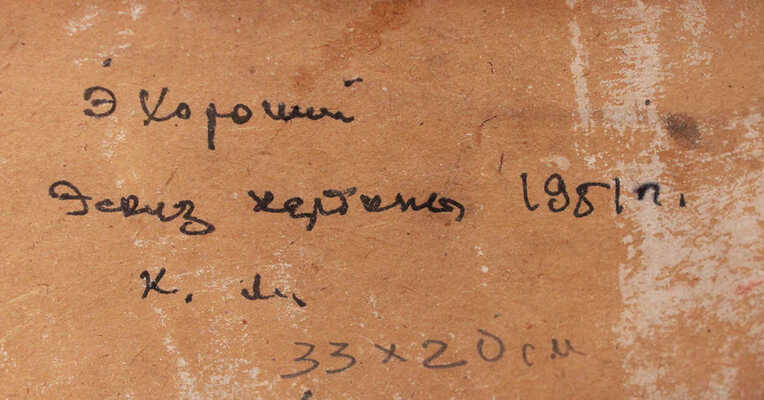 Э Хороший
Эскиз картины 1951 г.
к. м.
33 x 20 см